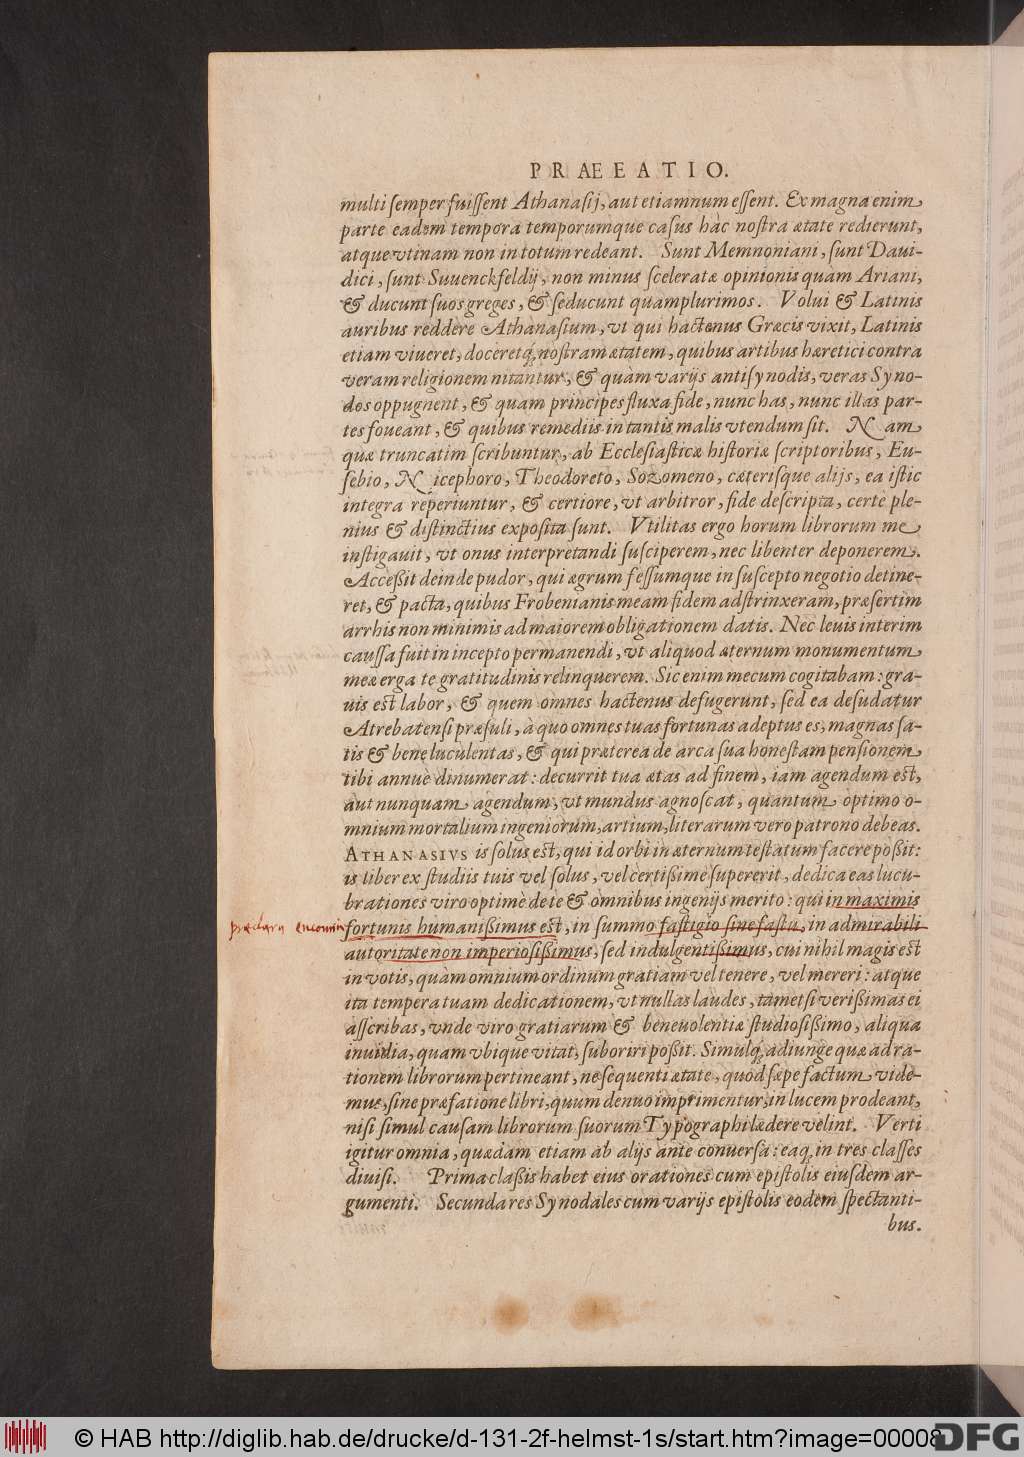 PRÆEATIO.
multi ſemper fuiſſent Athanaſij, aut etiamnum eſſent. Ex magna enim
parte eadem tempora temporumque caſus hàc noſtra ætate redierunt,
atque vtinam non in totum redeant. Sunt Memnoniani, ſunt Daui-
dici, ſunt Suuenckfeldij, non minus ſceleratæ opinionis quàm Ariani,
& ducunt ſuos greges, & ſeducunt quamplurimos. Volui & Latinis
auribus reddere Athanaſium, vt qui hactenus Græcis vixit, Latinis
etiam viueret, doceretq́; noſtram ætatem, quibus artibus hæretici contra
veram religionem nitantur, & quàm varijs antiſynodis, veras Syno-
dos oppugnent, & quam principes fluxa fide, nunc has, nunc illas par-
tes foueant, & quibus remediis in tantis malis vtendum ſit. Nam
quæ truncatim ſcribuntur, ab Eccleſiaſticæ hiſtoriæ ſcriptoribus, Eu-
ſebio, Nicephoro, Theodoreto, Sozomeno, cæteriſque alijs, ea iſtic
integra reperiuntur, & certiore, vt arbitror, fide deſcripta, certè ple-
nius & diſtinctius expoſita ſunt. Vtilitas ergo horum librorum me
inſtigauit, vt onus interpretandi ſuſciperem, nec libenter deponerem.
Acceßit deinde pudor, qui ægrum feſſumque in ſuſcepto negotio detine-
ret, & pacta, quibus Frobenianis meam fidem adſtrinxeram, præſertim
arrhis non minimis ad maiorem obligationem datis. Nec leuis interim
cauſſa fuit in incepto permanendi, vt aliquod æternum monumentum
meæ erga te gratitudinis relinquerem. Sic enim mecum cogitabam: gra-
uis eſt labor, & quem omnes hactenus defugerunt, ſed ea deſudatur
Atrebatenſi præſuli, à quo omnes tuas fortunas adeptus es, magnas ſa-
tis & bene luculentas, & qui præterea de arca ſua honeſtam penſionem
tibi annuè dinumerat: decurrit tua ætas ad finem, iam agendum eſt,
aut nunquam agendum, vt mundus agnoſcat, quantum optimo o-
mnium mortalium ingeniorum, artium, literarum vero patrono debeas.
ATHANASIVS is ſolus eſt, qui id orbi in æternum teſtatum facere poßit:
is liber ex ſtudiis tuis vel ſolus, vel certißimè ſupererit, dedica eas lucu-
brationes viro optimè de te & omnibus ingenijs merito: qui in maximis
præclarū encomiū fortunis humanißimus eſt, in ſummo faſtigio ſine faſtu, in admirabili
autoritate non imperioſißimus, ſed indulgentißimus, cui nihil magis eſt
in votis, quàm omnium ordinum gratiam vel tenere, vel mereri: atque
ita tempera tuam dedicationem, vt nullas laudes, tametſi verißimas ei
aſſcribas, vnde viro gratiarum & beneuolentiæ ſtudioſißimo, aliqua
inuidia, quam vbique vitat, ſuboriri poßit. Simulq́; adiunge quæ ad ra-
tionem librorum pertineant, ne ſequenti ætate, quod ſæpe factum vide-
mus, ſine præfatione libri, quum denuo imprimentur, in lucem prodeant,
niſi ſimul cauſam librorum ſuorum Typographi lædere velint. Verti
igitur omnia, quædam etiam ab alijs ante conuerſa: eaq́; in tres claſſes
diuiſi. Prima claßis habet eius orationes cum epiſtolis eiuſdem ar-
gumenti. Secunda res Synodales cum varijs epiſtolis eodem ſpectanti-
bus.
© HAB http://diglib.hab.de/drucke/d-131-2f-helmst-1s/start.htm?image=00008
DFG